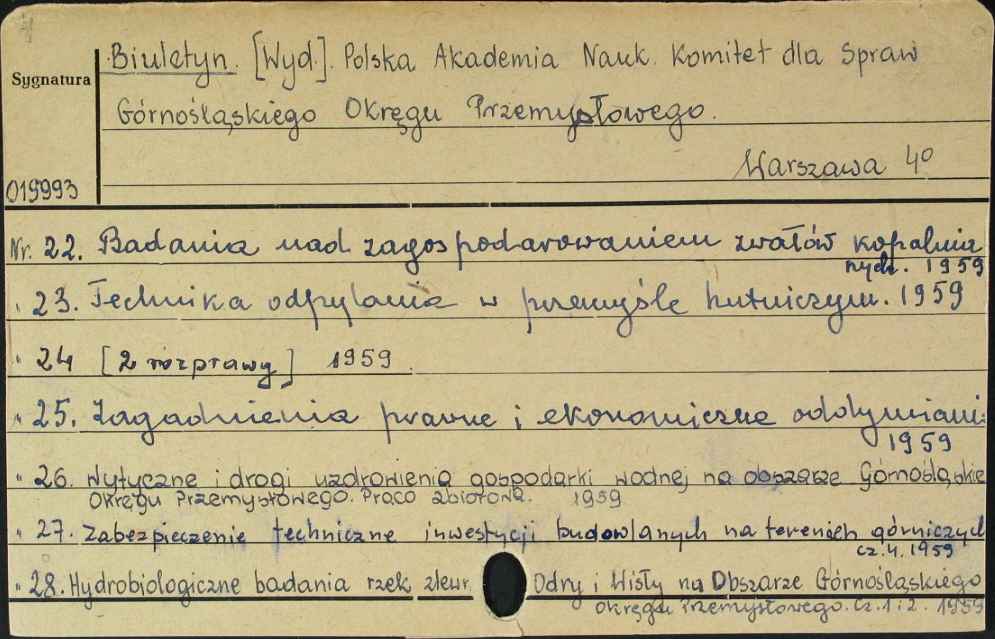 Biuletyn. [Wyd.]. Polska Akademia Nauk. Komitet dla Spraw
Sygnatura
Górnośląskiego Okręgu Przemysłowego.
Warszawa 4°
019993
Nr. 22. Badania nad zagospodarowaniem zwałów kopalnia
nych. 1959
" 23. Technika odpylania w przemyśle hutniczym. 1959
" 24 [2 rozprawy] 1959.
" 25. Zagadnienia prawne i ekonomiczne oddymiani
1959
" 26. Wytyczne i drogi uzdrowienia gospodarki wodnej na obszarze Górnośląskie
Okręgu Przemysłowego. Praca zbiorowa. 1959
" 27. Zabezpieczenie techniczne inwestycji budowlanych na terenach górniczych
cz. 4. 1959
" 28. Hydrobiologiczne badania rzek zlewr. Odry i Wisły na Obszarze Górnośląskiego
Okręgu Przemysłowego. Cz. 1 i 2. 1959